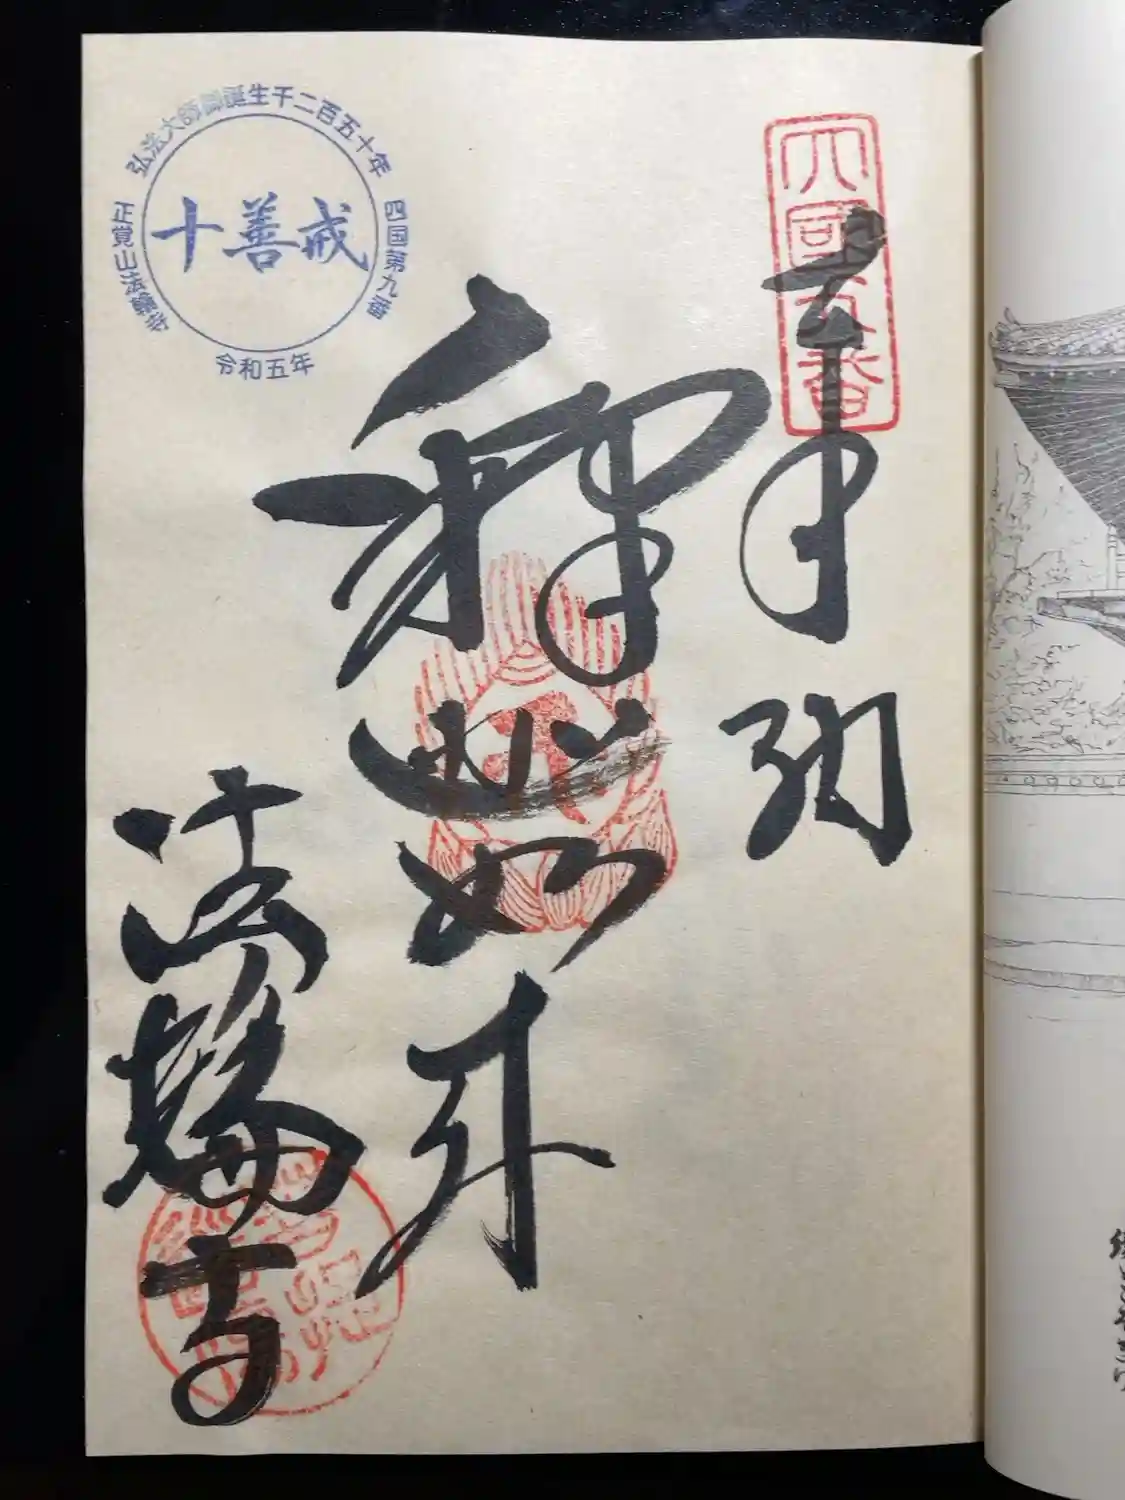 弘法大師御誕生千二百五十年
四国第九番
正覚山法輪寺
十善戒
令和五年
四國九番
奉納
釋迦如来
法輪寺